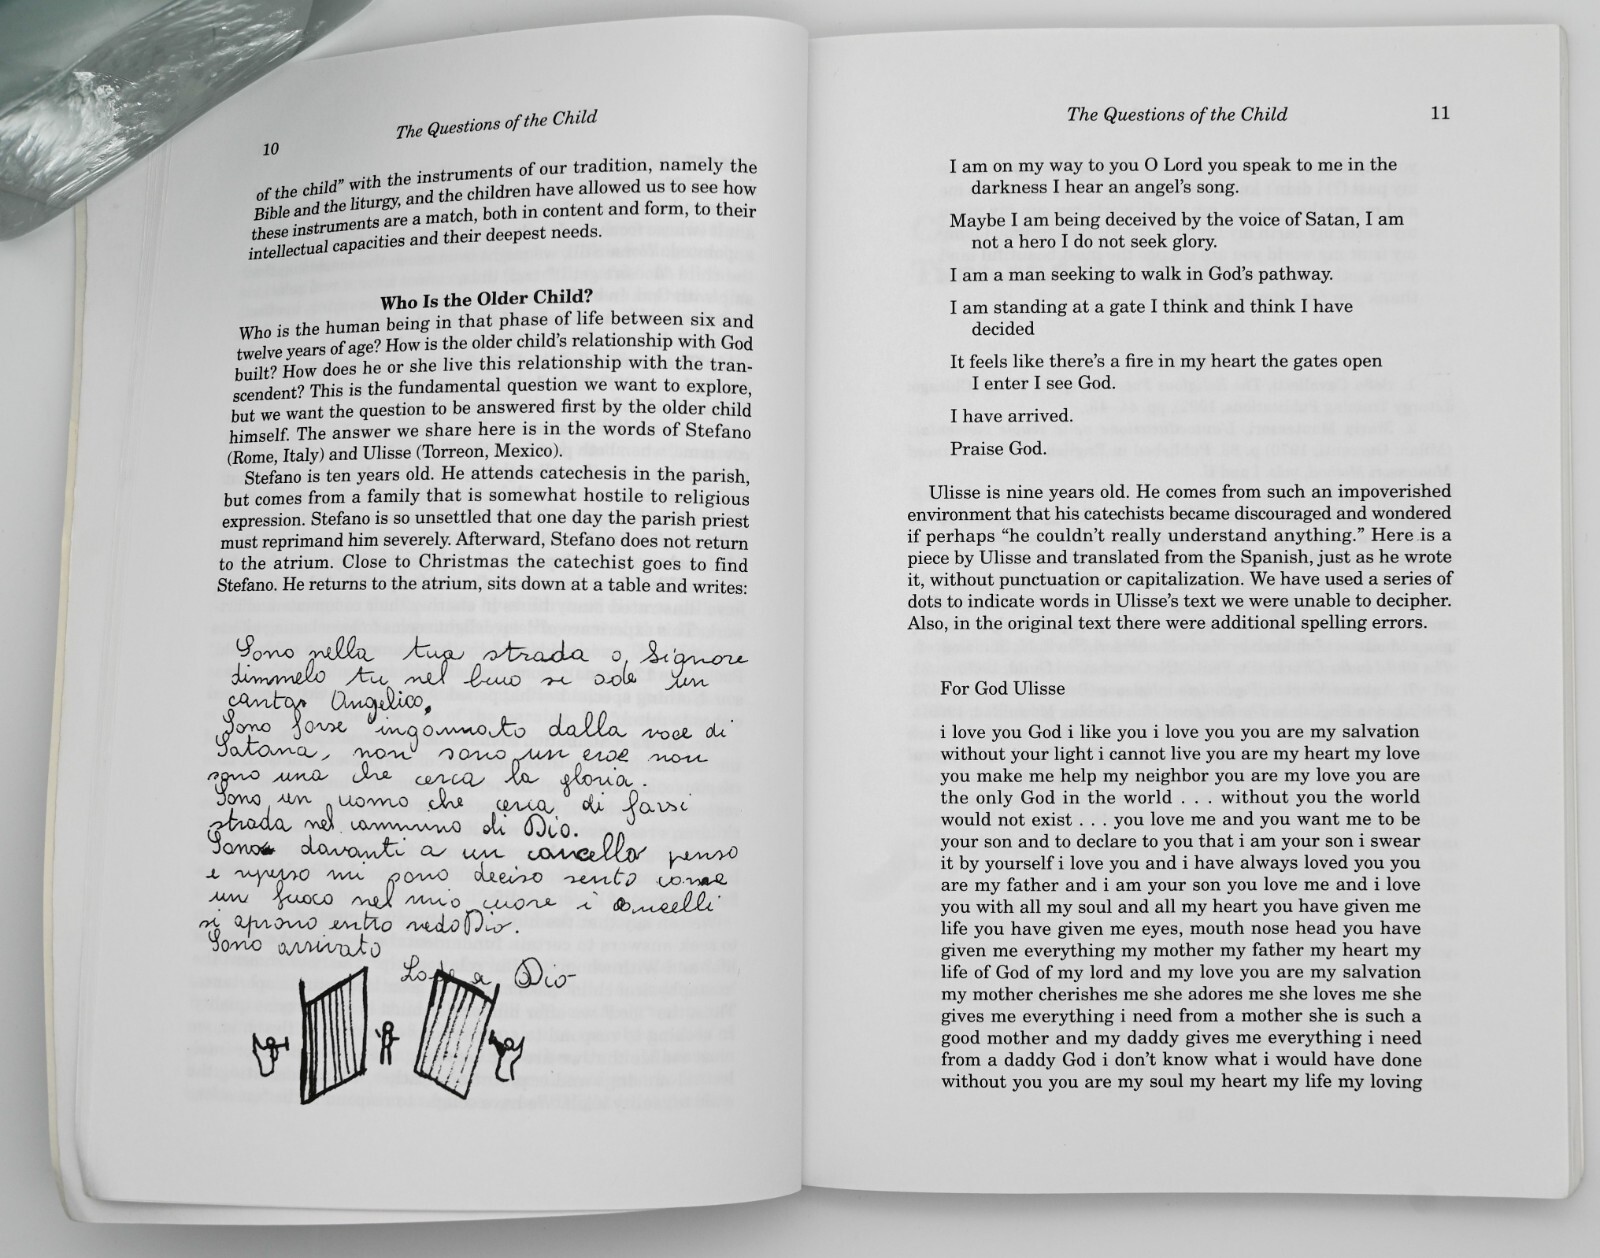 10
The Questions of the Child
of the child" with the instruments of our tradition, namely the
Bible and the liturgy, and the children have allowed us to see how
these instruments are a match, both in content and form, to their
intellectual capacities and their deepest needs.
Who Is the Older Child?
Who is the human being in that phase of life between six and
twelve years of age? How is the older child's relationship with God
built? How does he or she live this relationship with the tran-
scendent? This is the fundamental question we want to explore,
but we want the question to be answered first by the older child
himself. The answer we share here is in the words of Stefano
(Rome, Italy) and Ulisse (Torreon, Mexico).
Stefano is ten years old. He attends catechesis in the parish,
but comes from a family that is somewhat hostile to religious
expression. Stefano is so unsettled that one day the parish priest
must reprimand him severely. Afterward, Stefano does not return
to the atrium. Close to Christmas the catechist goes to find
Stefano. He returns to the atrium, sits down at a table and writes:
Sono nella tua strada o Signore
dimmelo tu nel buio si ode un
canto Angelico.
Sono forse ingannato dalla voce di
Satana, non sono un eroe non
sono una che cerca la gloria.
Sono un uomo che cerca di farsi
strada nel cammino di Dio.
Sono davanti a un cancello penso
e ripenso mi sono deciso sento come
un fuoco nel mio cuore i cancelli
si aprono entro vedo Dio.
Sono arrivato
Lode a Dio
The Questions of the Child
11
I am on my way to you O Lord you speak to me in the
darkness I hear an angel's song.
Maybe I am being deceived by the voice of Satan, I am
not a hero I do not seek glory.
I am a man seeking to walk in God's pathway.
I am standing at a gate I think and think I have
decided
It feels like there's a fire in my heart the gates open
I enter I see God.
I have arrived.
Praise God.
Ulisse is nine years old. He comes from such an impoverished
environment that his catechists became discouraged and wondered
if perhaps "he couldn't really understand anything." Here is a
piece by Ulisse and translated from the Spanish, just as he wrote
it, without punctuation or capitalization. We have used a series of
dots to indicate words in Ulisse's text we were unable to decipher.
Also, in the original text there were additional spelling errors.
For God Ulisse
i love you God i like you i love you you are my salvation
without your light i cannot live you are my heart my love
you make me help my neighbor you are my love you are
the only God in the world . . . without you the world
would not exist . . . you love me and you want me to be
your son and to declare to you that i am your son i swear
it by yourself i love you and i have always loved you you
are my father and i am your son you love me and i love
you with all my soul and all my heart you have given me
life you have given me eyes, mouth nose head you have
given me everything my mother my father my heart my
life of God of my lord and my love you are my salvation
my mother cherishes me she adores me she loves me she
gives me everything i need from a mother she is such a
good mother and my daddy gives me everything i need
from a daddy God i don't know what i would have done
without you you are my soul my heart my life my loving